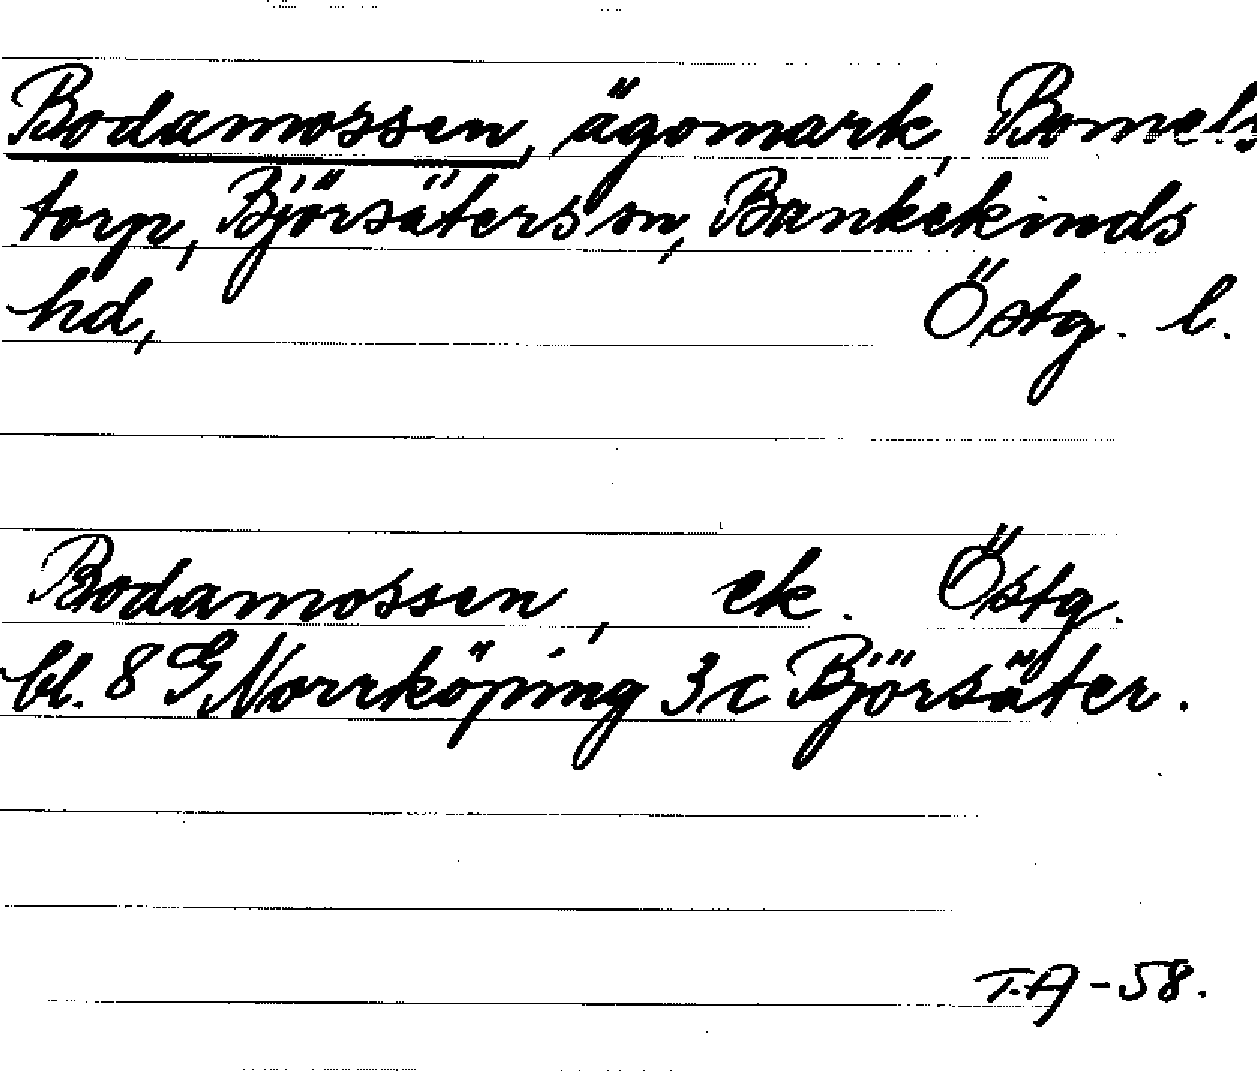 Bodamossen, ägomark, Bomels
torp, Björsäters sn, Bankekinds
hd, Östg. l.
Bodamossen, ek. Östg.
bl. 8 G Norrköping 3 c Björsäter.
T.A - 58.